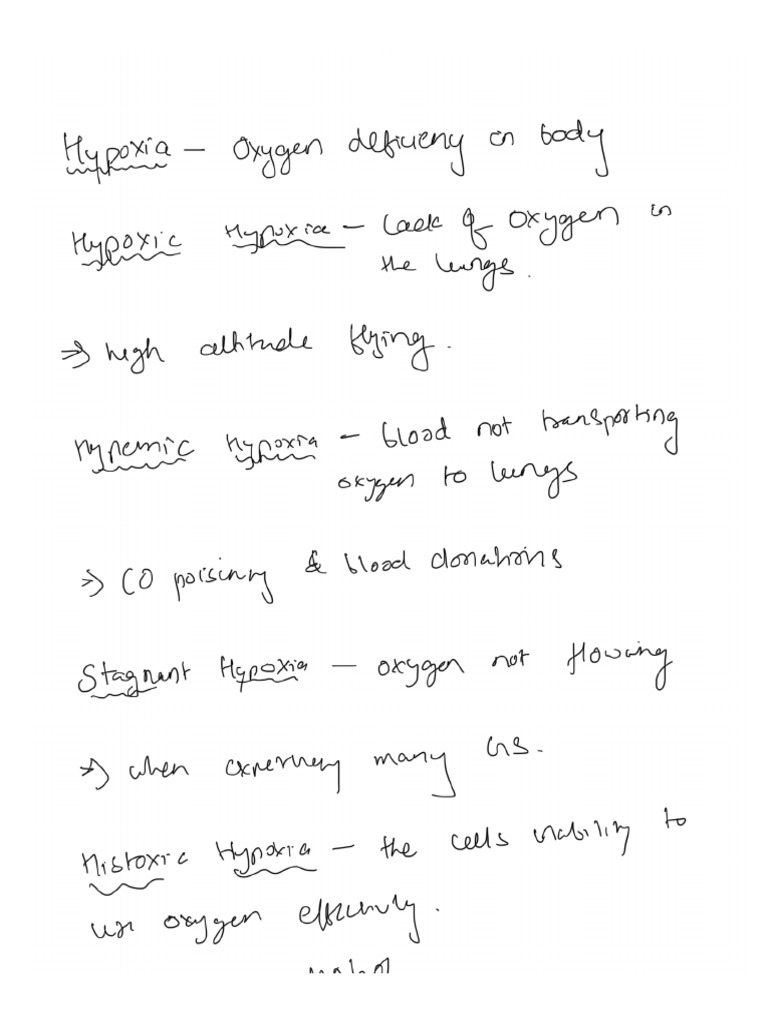 Hypoxia - Oxygen deficieny in body
Hypoxic Hypoxia - Lack of oxygen in
the lungs.
⇒ high altitude flying.
Hypemic Hypoxia - blood not transporting
oxygen to lungs
⇒ CO poisining & blood donations
Stagnant Hypoxia - oxygen not flowing
⇒ when many Gs.
Histoxic Hypoxia - the cells inability to
use oxygen efficiently.